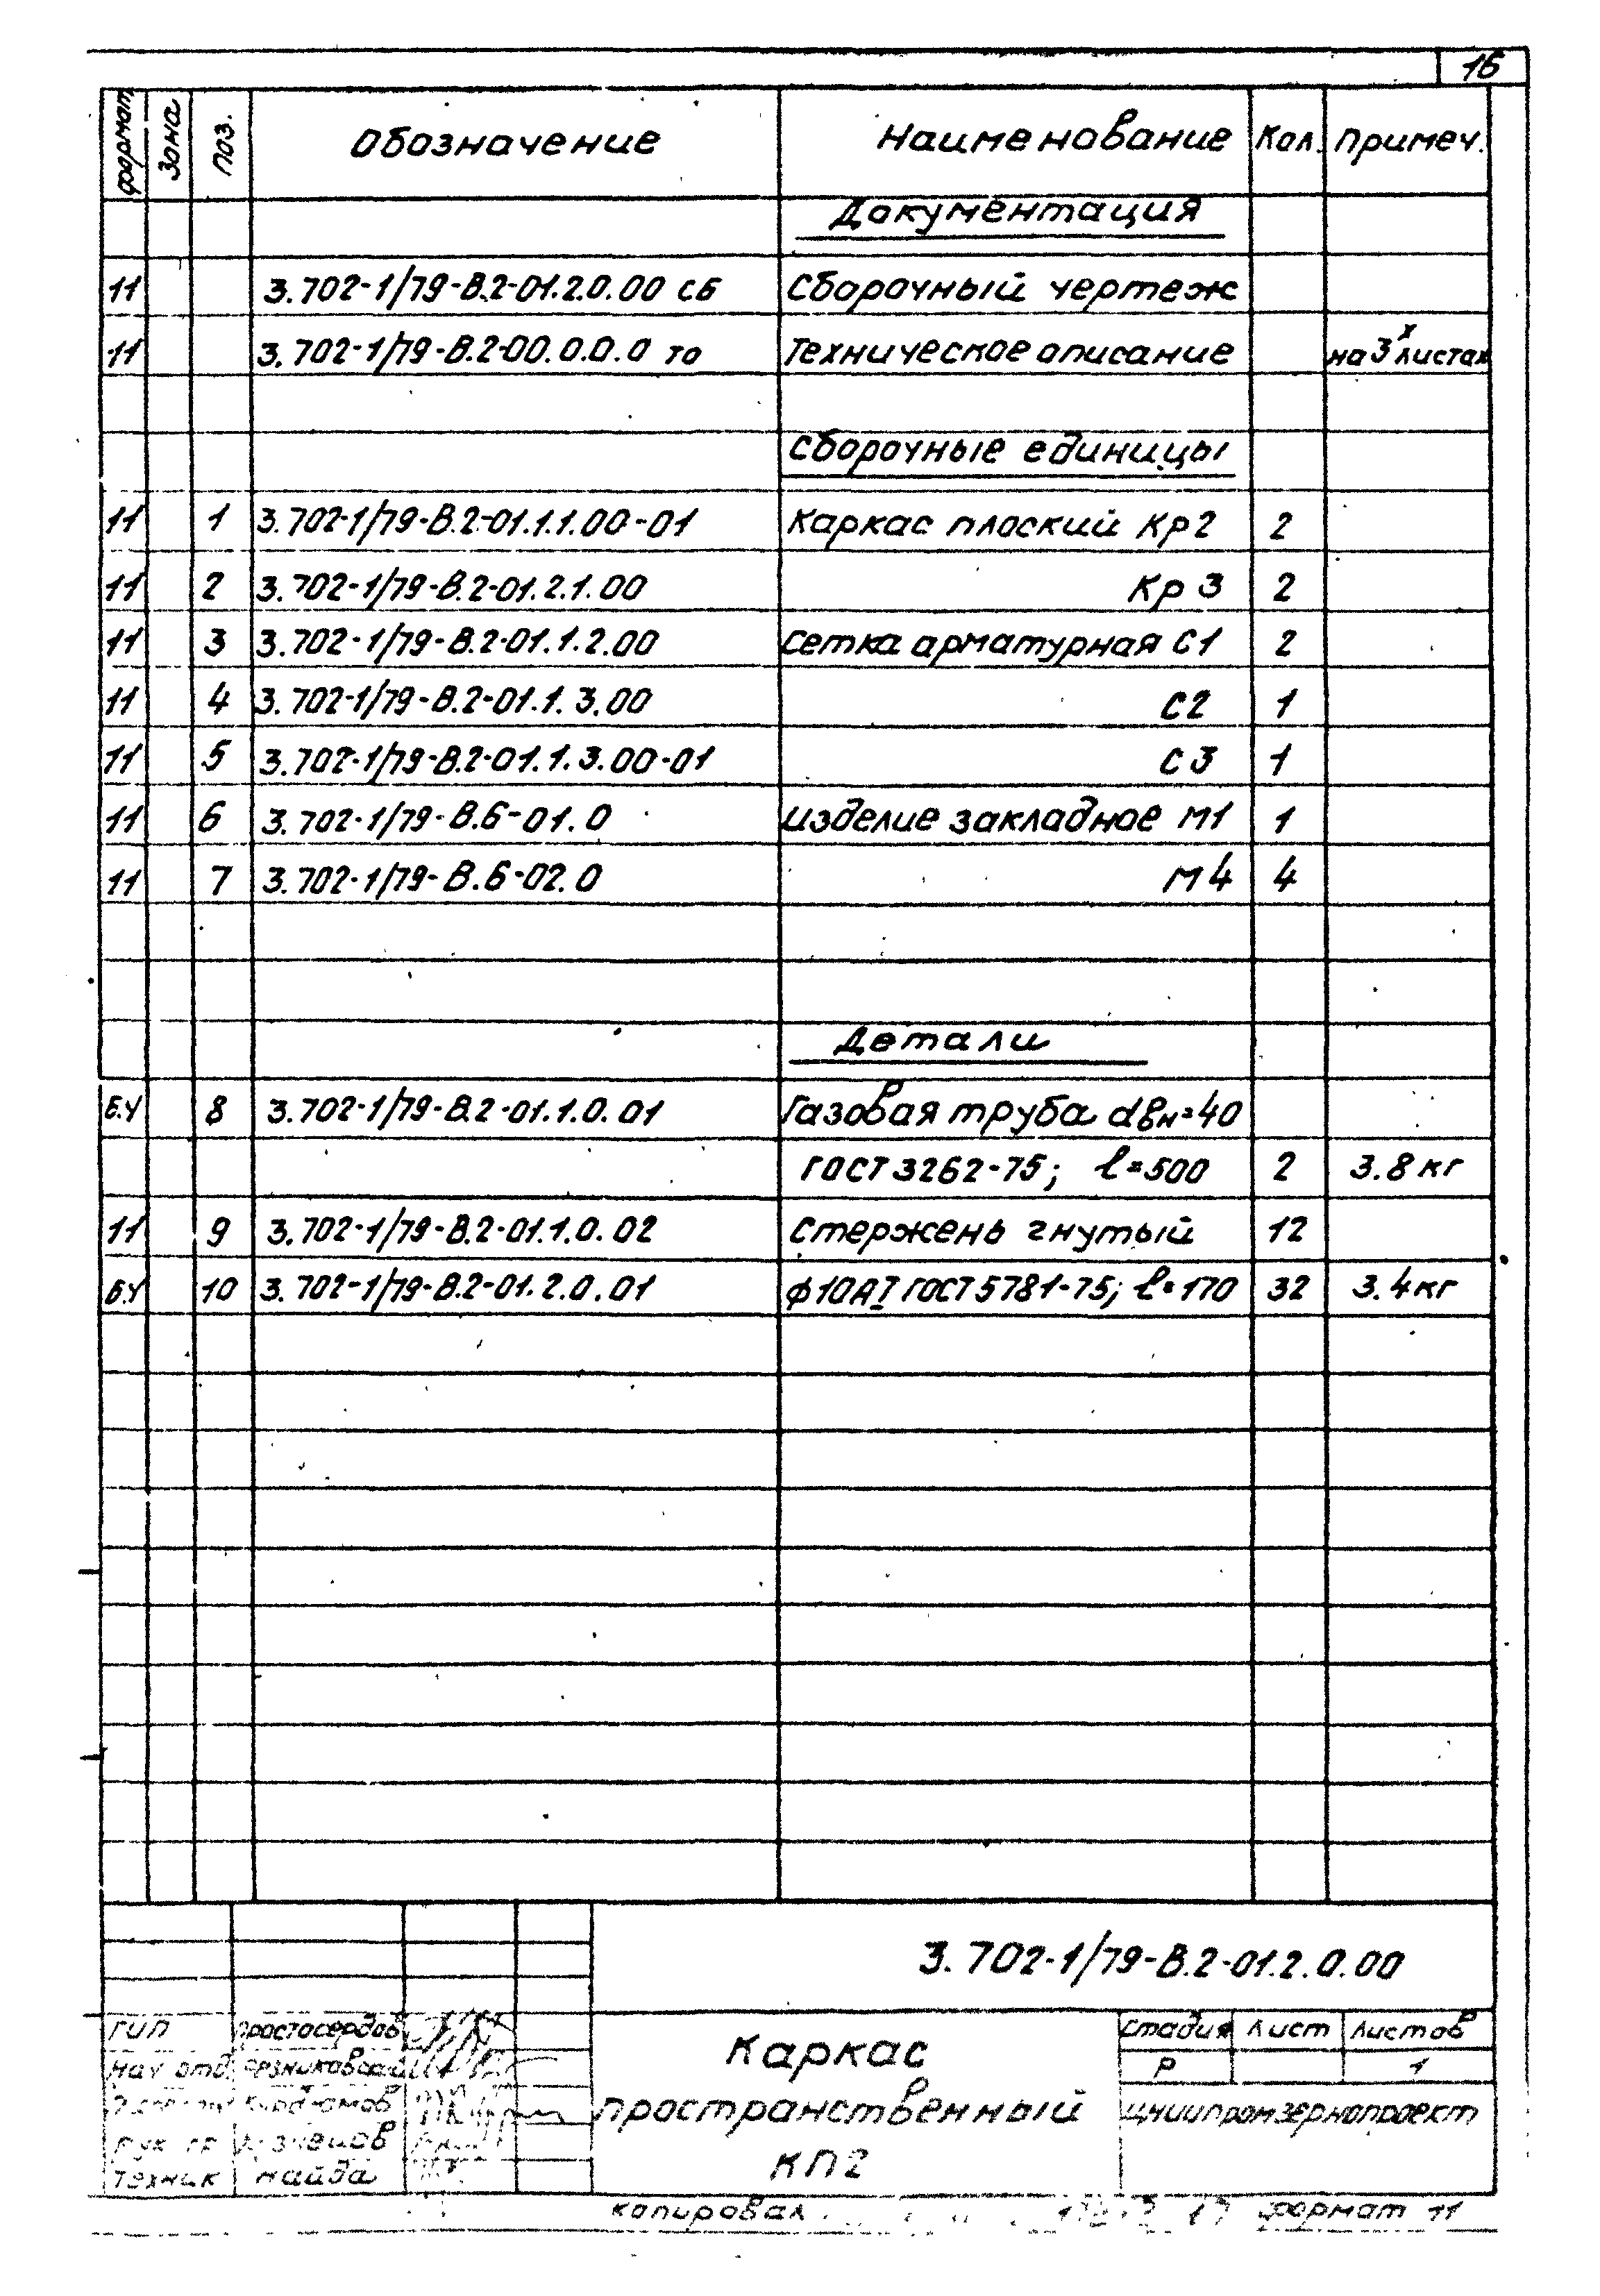 16
формат Зона Поз. Обозначение Наименование Кол. Примеч.
Документация
11 3.702-1/79-В.2-01.2.0.00 СБ Сборочный чертеж
11 3.702-1/79-В.2-00.0.0.0 ТО Техническое описание на 3х листах
Сборочные единицы
11 1 3.702-1/79-В.2-01.1.1.00-01 Каркас плоский Кр2 2
11 2 3.702-1/79-В.2-01.2.1.00 Кр3 2
11 3 3.702-1/79-В.2-01.1.2.00 Сетка арматурная С1 2
11 4 3.702-1/79-В.2-01.1.3.00 С2 1
11 5 3.702-1/79-В.2-01.1.3.00-01 С3 1
11 6 3.702-1/79-В.6-01.0 Изделие закладное М1 1
11 7 3.702-1/79-В.6-02.0 М4 4
Детали
Б.Ч 8 3.702-1/79-В.2-01.1.0.01 Газовая труба dвн=40
ГОСТ 3262-75; l=500 2 3.8 кг
11 9 3.702-1/79-В.2-01.1.0.02 Стержень гнутый 12
Б.Ч 10 3.702-1/79-В.2-01.2.0.01 ф10АI ГОСТ 5781-75; l=170 32 3.4 кг
3.702-1/79-В.2-01.2.0.00
ГИП Простосердов
Нач отд.
Рук. гр
Техник Найда
Каркас
пространственный
КП2
Стадия Лист Листов
Р 1
ЦНИИпромзернопроект
Копировал Формат 11